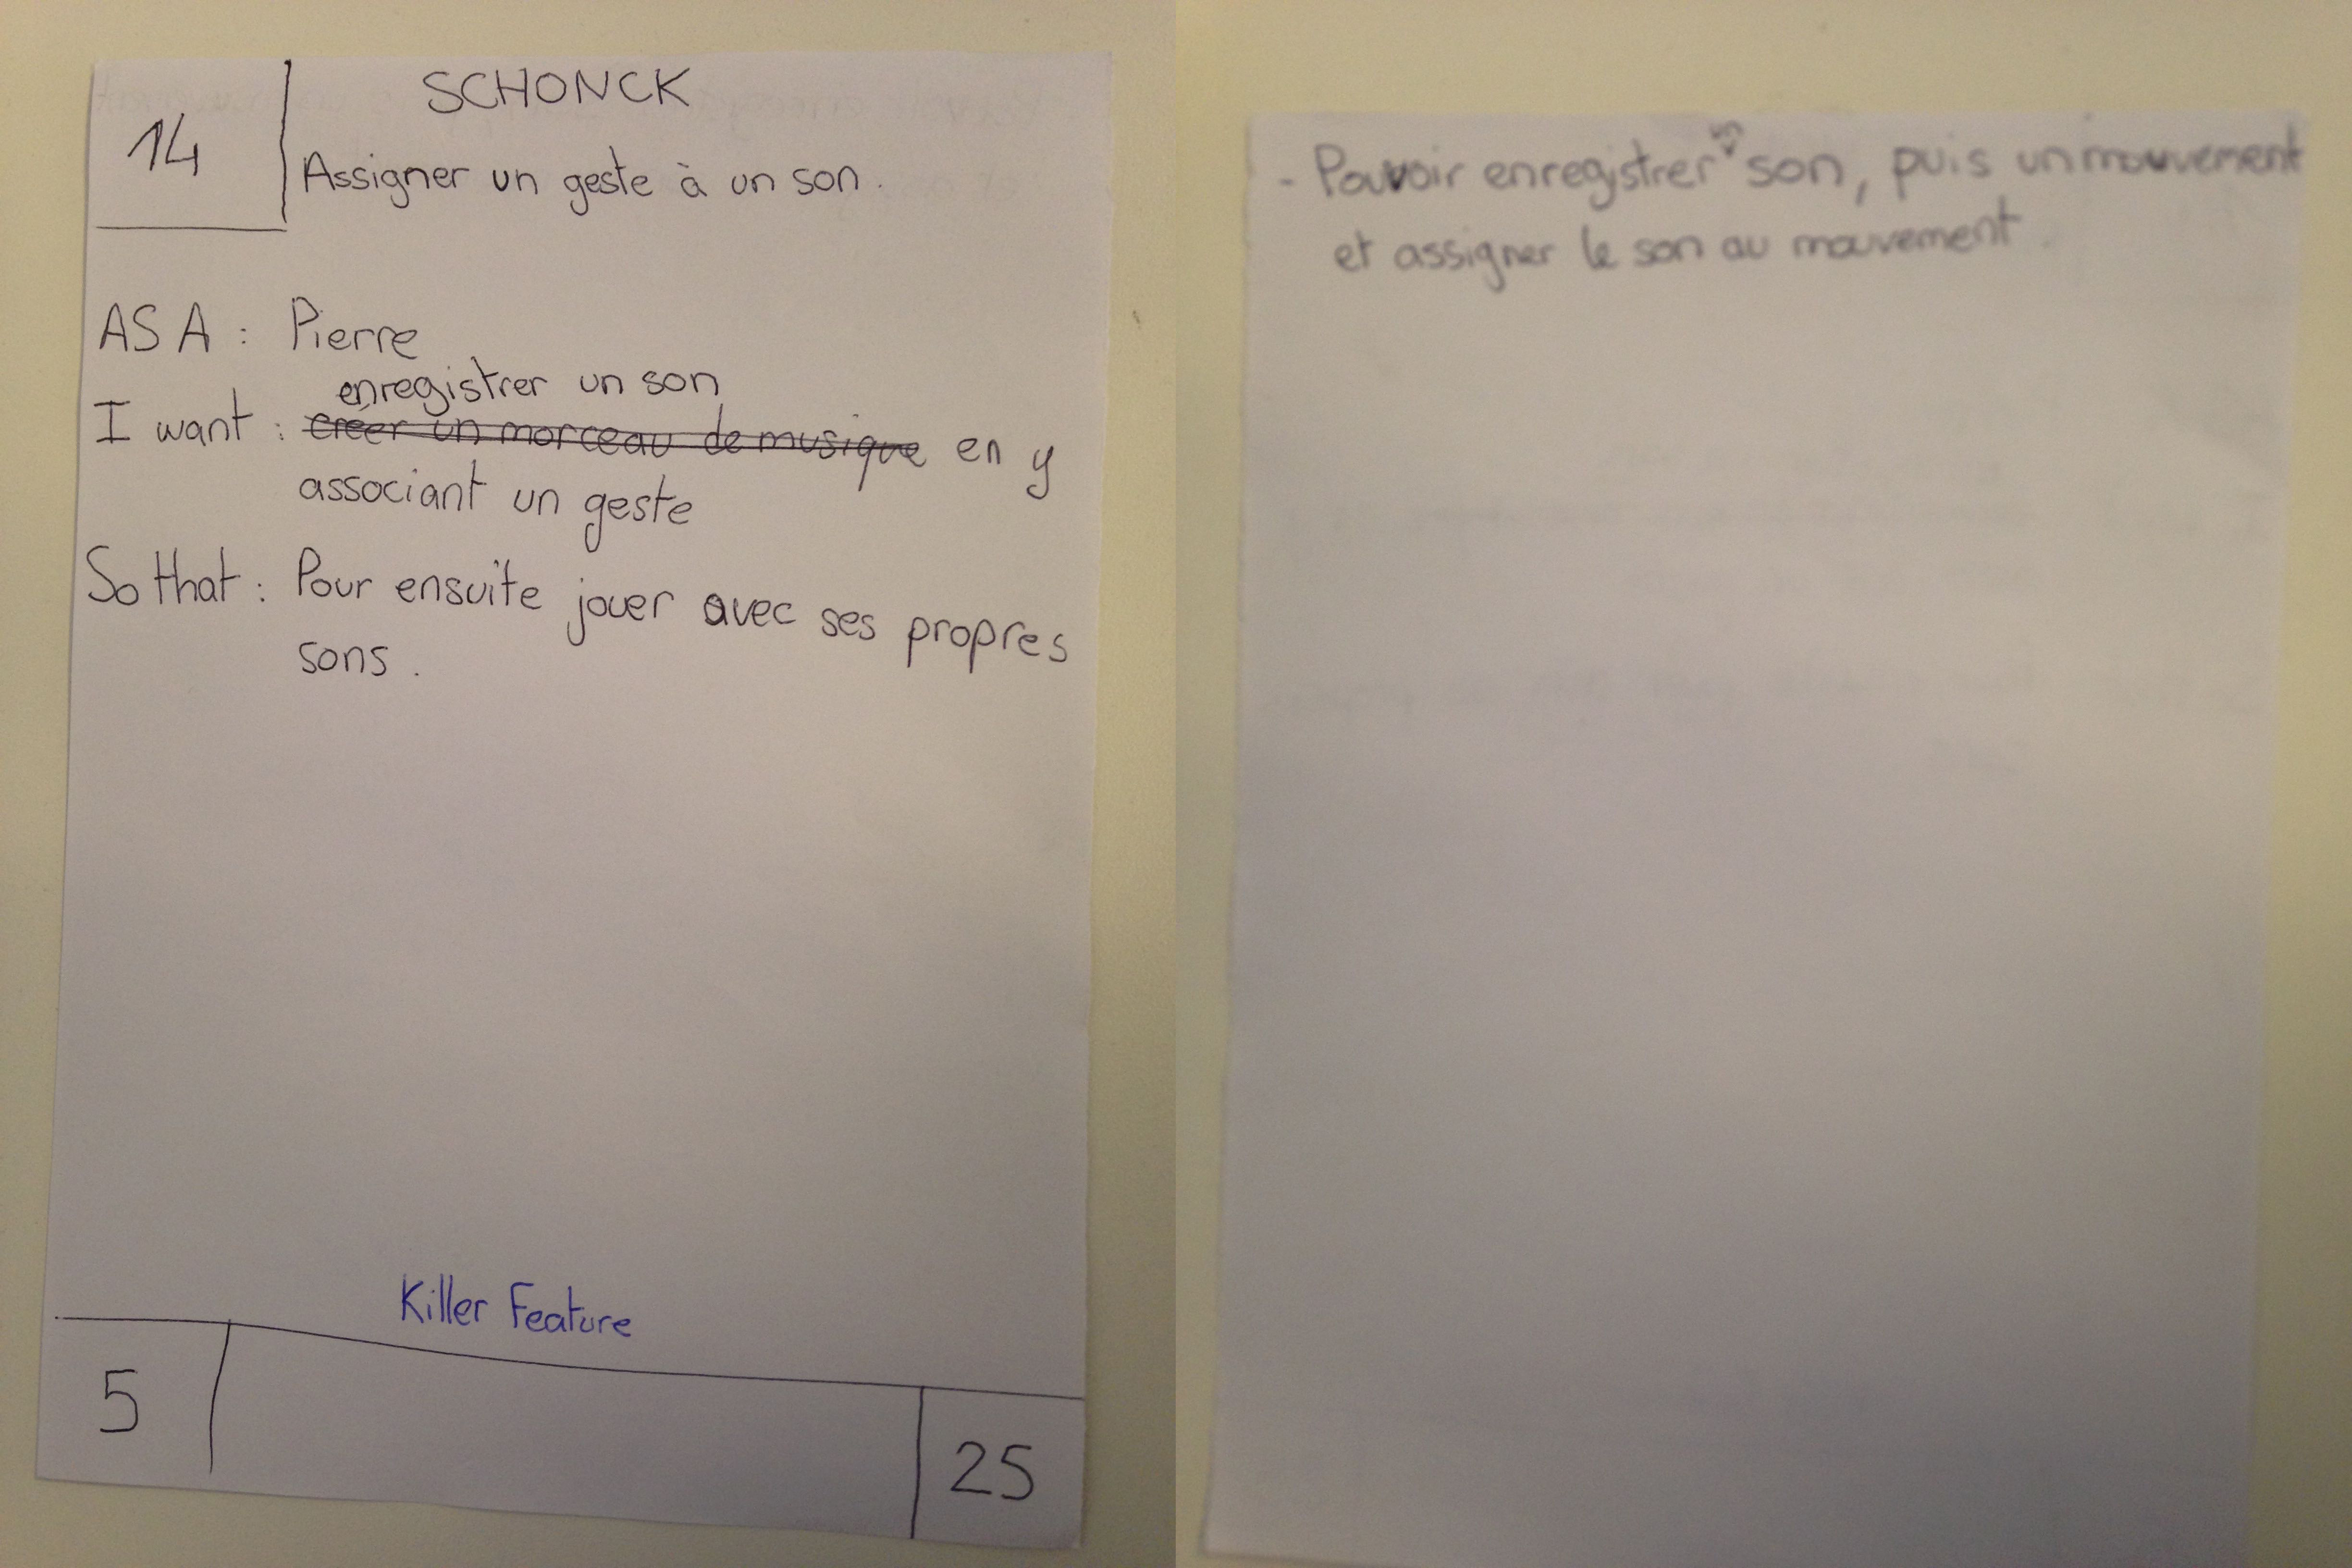 14
SCHONCK
Assigner un geste à un son.
AS A : Pierre
enregistrer un son
I want : créer un morceau de musique en y
associant un geste
So that : Pour ensuite jouer avec ses propres
sons.
Killer Feature
5
25
- Pouvoir enregistrer un son, puis un mouvement
et assigner le son au mouvement.